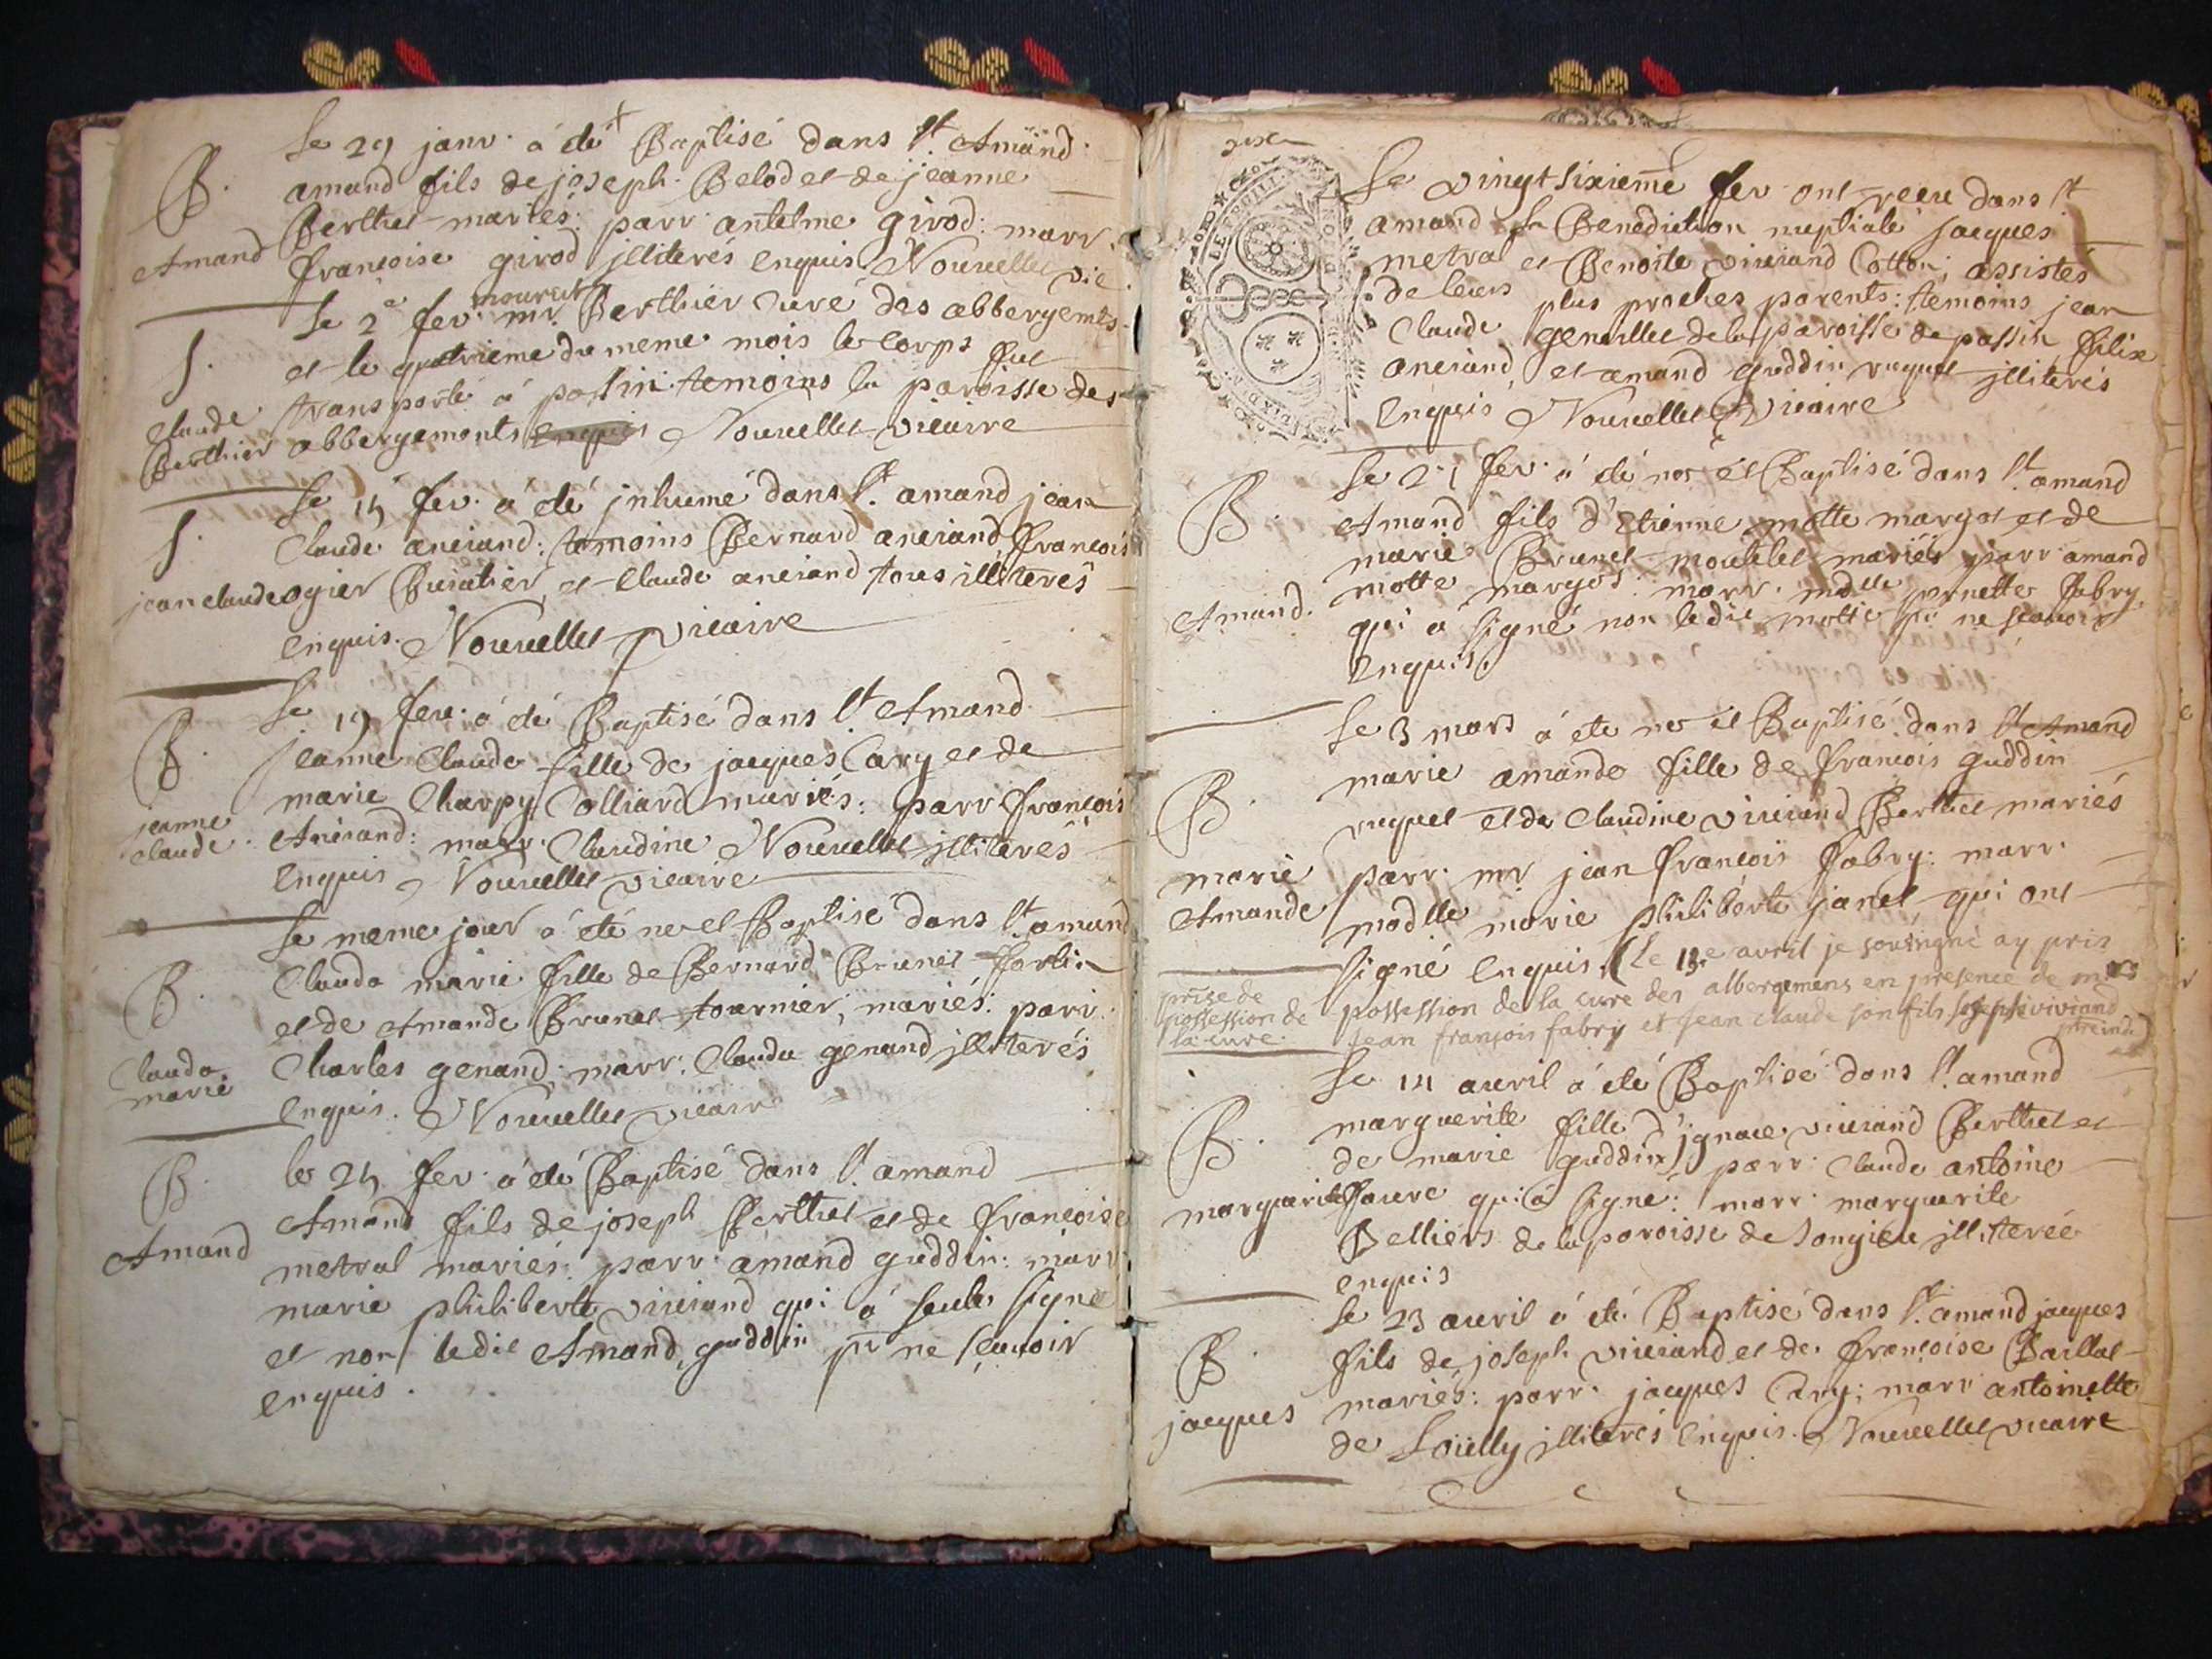 Le 29 janv. á été Baptisé dans St. Amand
B. amand fils de joseph Belod et de jeanne
Berthet mariés: parr. antelme girod: marr.
Amand francoise girod jlliterés enquis Nouvellet vic.
Le 2e fev. mourut mr. Berthier Curé des abbergemts
S. et le quatrieme du meme mois le corps fut
transporté á passin temoins la paroisse des
Claude Berthier abbergements enquis Nouvellet vicaire
Le 15 fev. á été jnhumé dans St. amand jean
S. Claude anerand: temoins Bernard anerand francois
jean claude ogier Buratier, et Claude anerand tous illiterés
enquis. Nouvellet vicaire
Le 19 fev. á été Baptisé dans St. Amand
B. jeanne Claude fille de jacques Cary et de
marie Charpy Colliard mariés: parr. francois
jeanne claude. Anerand: marr. Claudine Nouvellet jlliterés
enquis Nouvellet vicaire
Le meme jour á été ne et Baptisé dans St. amand
B. Clauda marie fille de Bernard Brunet fortin
et de Amande Brunet tournier, mariés: parr.
Clauda marie Charles genand: marr: Clauda genand jlliterés
enquis. Nouvellet vicair
B. le 25 fev. á été Baptisé dans St. amand
Amand Amand fils de joseph Berthet et de francoise
metral mariés: parr. amand guddin: marr.
marie philiberte vivirand qui á seule signé
et non ledit Amand guddin pr ne scavoir
enquis.
Le vingt sixieme fev. ont receu dans St
amand la Benediction nuptiale jacques
metral et Benoite vivirand Cotton; assistés
de leurs plus proches parents: temoins jean
Claude genillet de la paroisse de passin, felix
anerand, et amand guddin ruquet jlliterés
enquis Nouvellet vicaire
B. Le 27 fev. á été né et Baptisé dans St. amand
Amand fils d'Etienne motte margot et de
marie Brunet moutelet mariés parr. amand
Amand. motte margot: marr. mdlle pernette fabry
qui a signé non ledit motte pr ne scavoir
enquis.
Le 3 mars á eté né et Baptisé dans St. Amand
marie amande fille de francois guddin
B. ruquet et de Claudine vivirand Berthet mariés
marie parr. mr jean francois fabry: marr.
Amande madlle marie philiberte janet qui ont
signé enquis. (Le 13e avril je sousigné ay pris
prise de possession de la cure. possession de la cure des albergemens en presence de mrs
jean françois fabry et jean claude son fils joseph vivirand
Le 14 avril á été Baptisé dans St. amand
B. marguerite fille d'jgnace vivirand Berthet et
de marie guddin, parr. Claude antoine
marguerite favre qui á signé: marr. marguerite
Belliers de la paroisse de Songieu jlliterée
enquis
Le 23 avril á été Baptisé dans St. amand jacques
B. fils de joseph vivirand et de francoise Baillat
jacques mariés: parr. jacques Cary; marr. antoinette
de Loüilly jlliterés enquis. Nouvellet vicaire